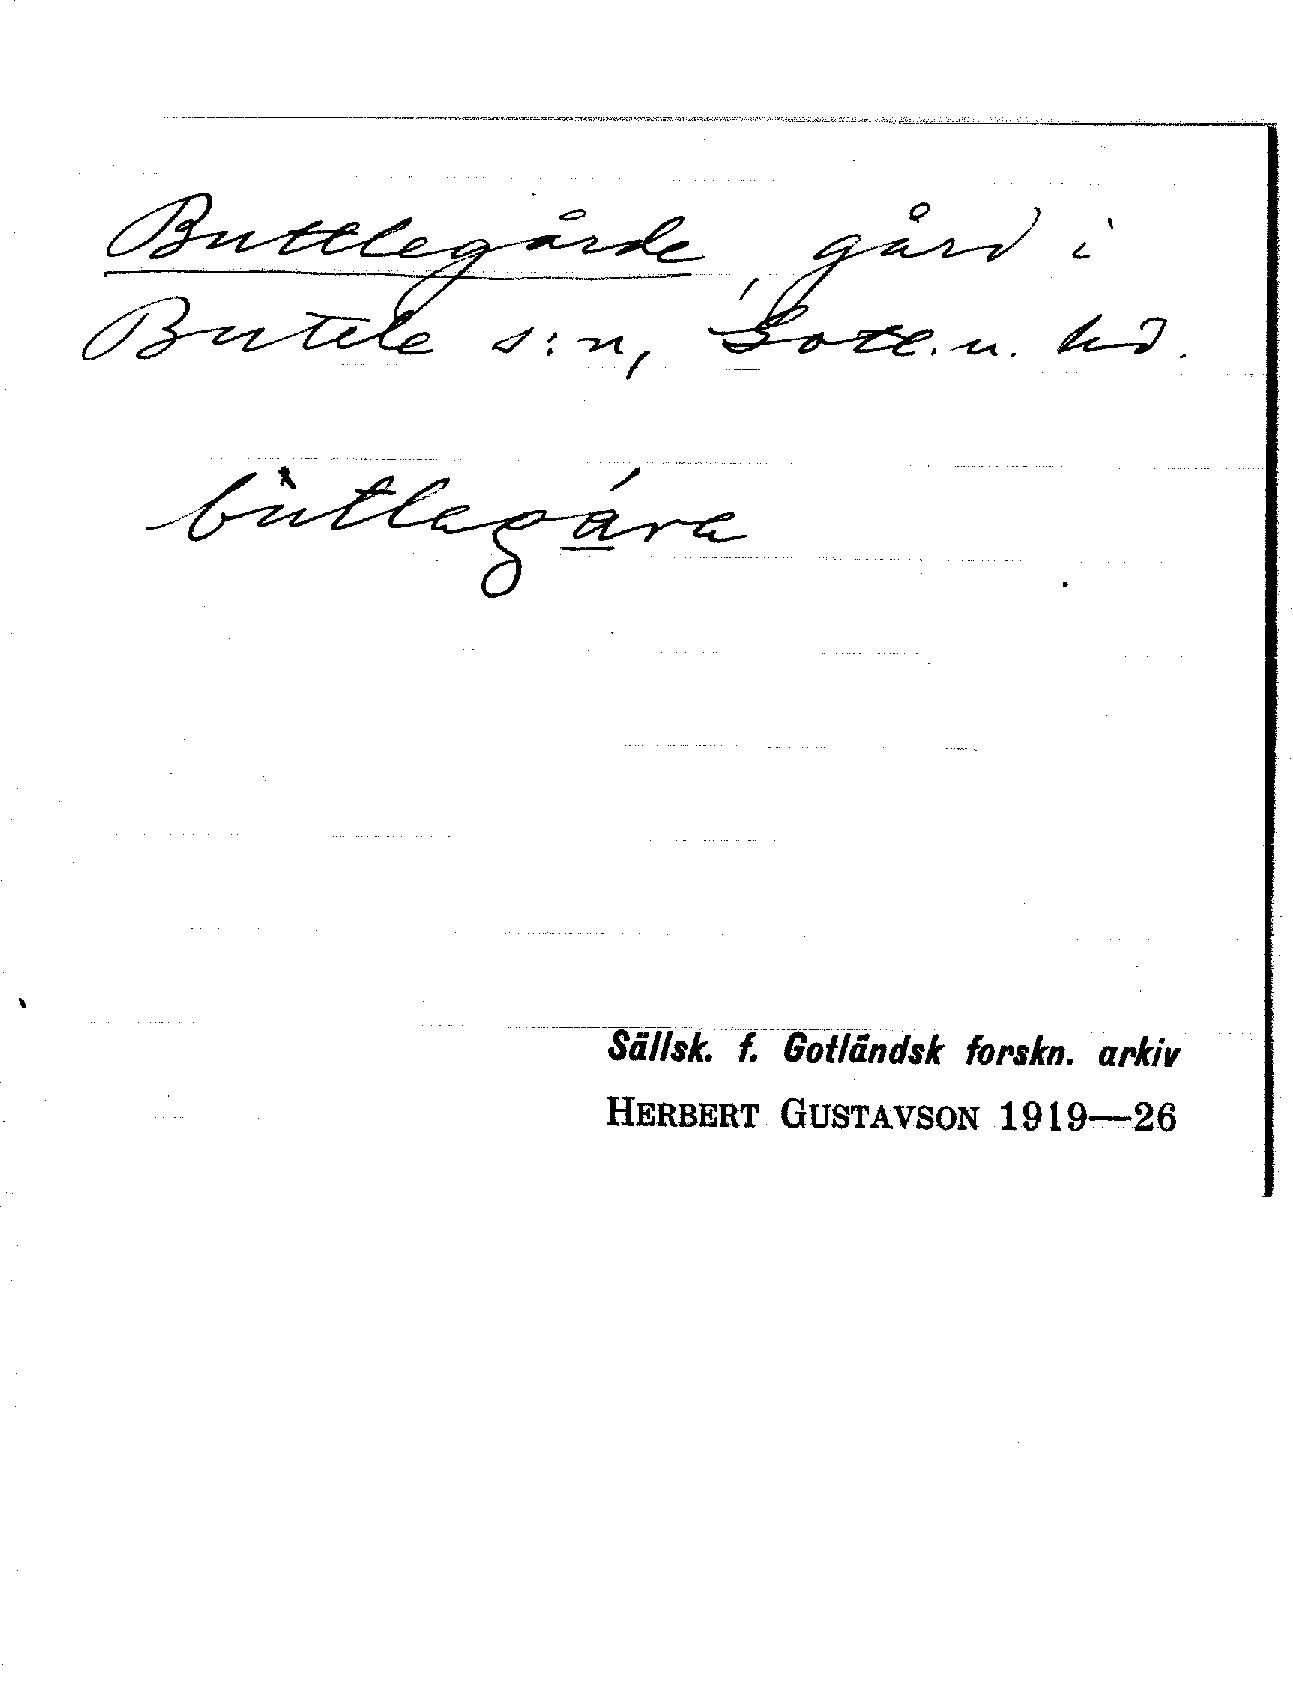 Buttlegårde, gård i
Buttle s:n, Gotl. n. hd.
bùtlagára
Sällsk. f. Gotländsk forskn. arkiv
HERBERT GUSTAVSON 1919—26